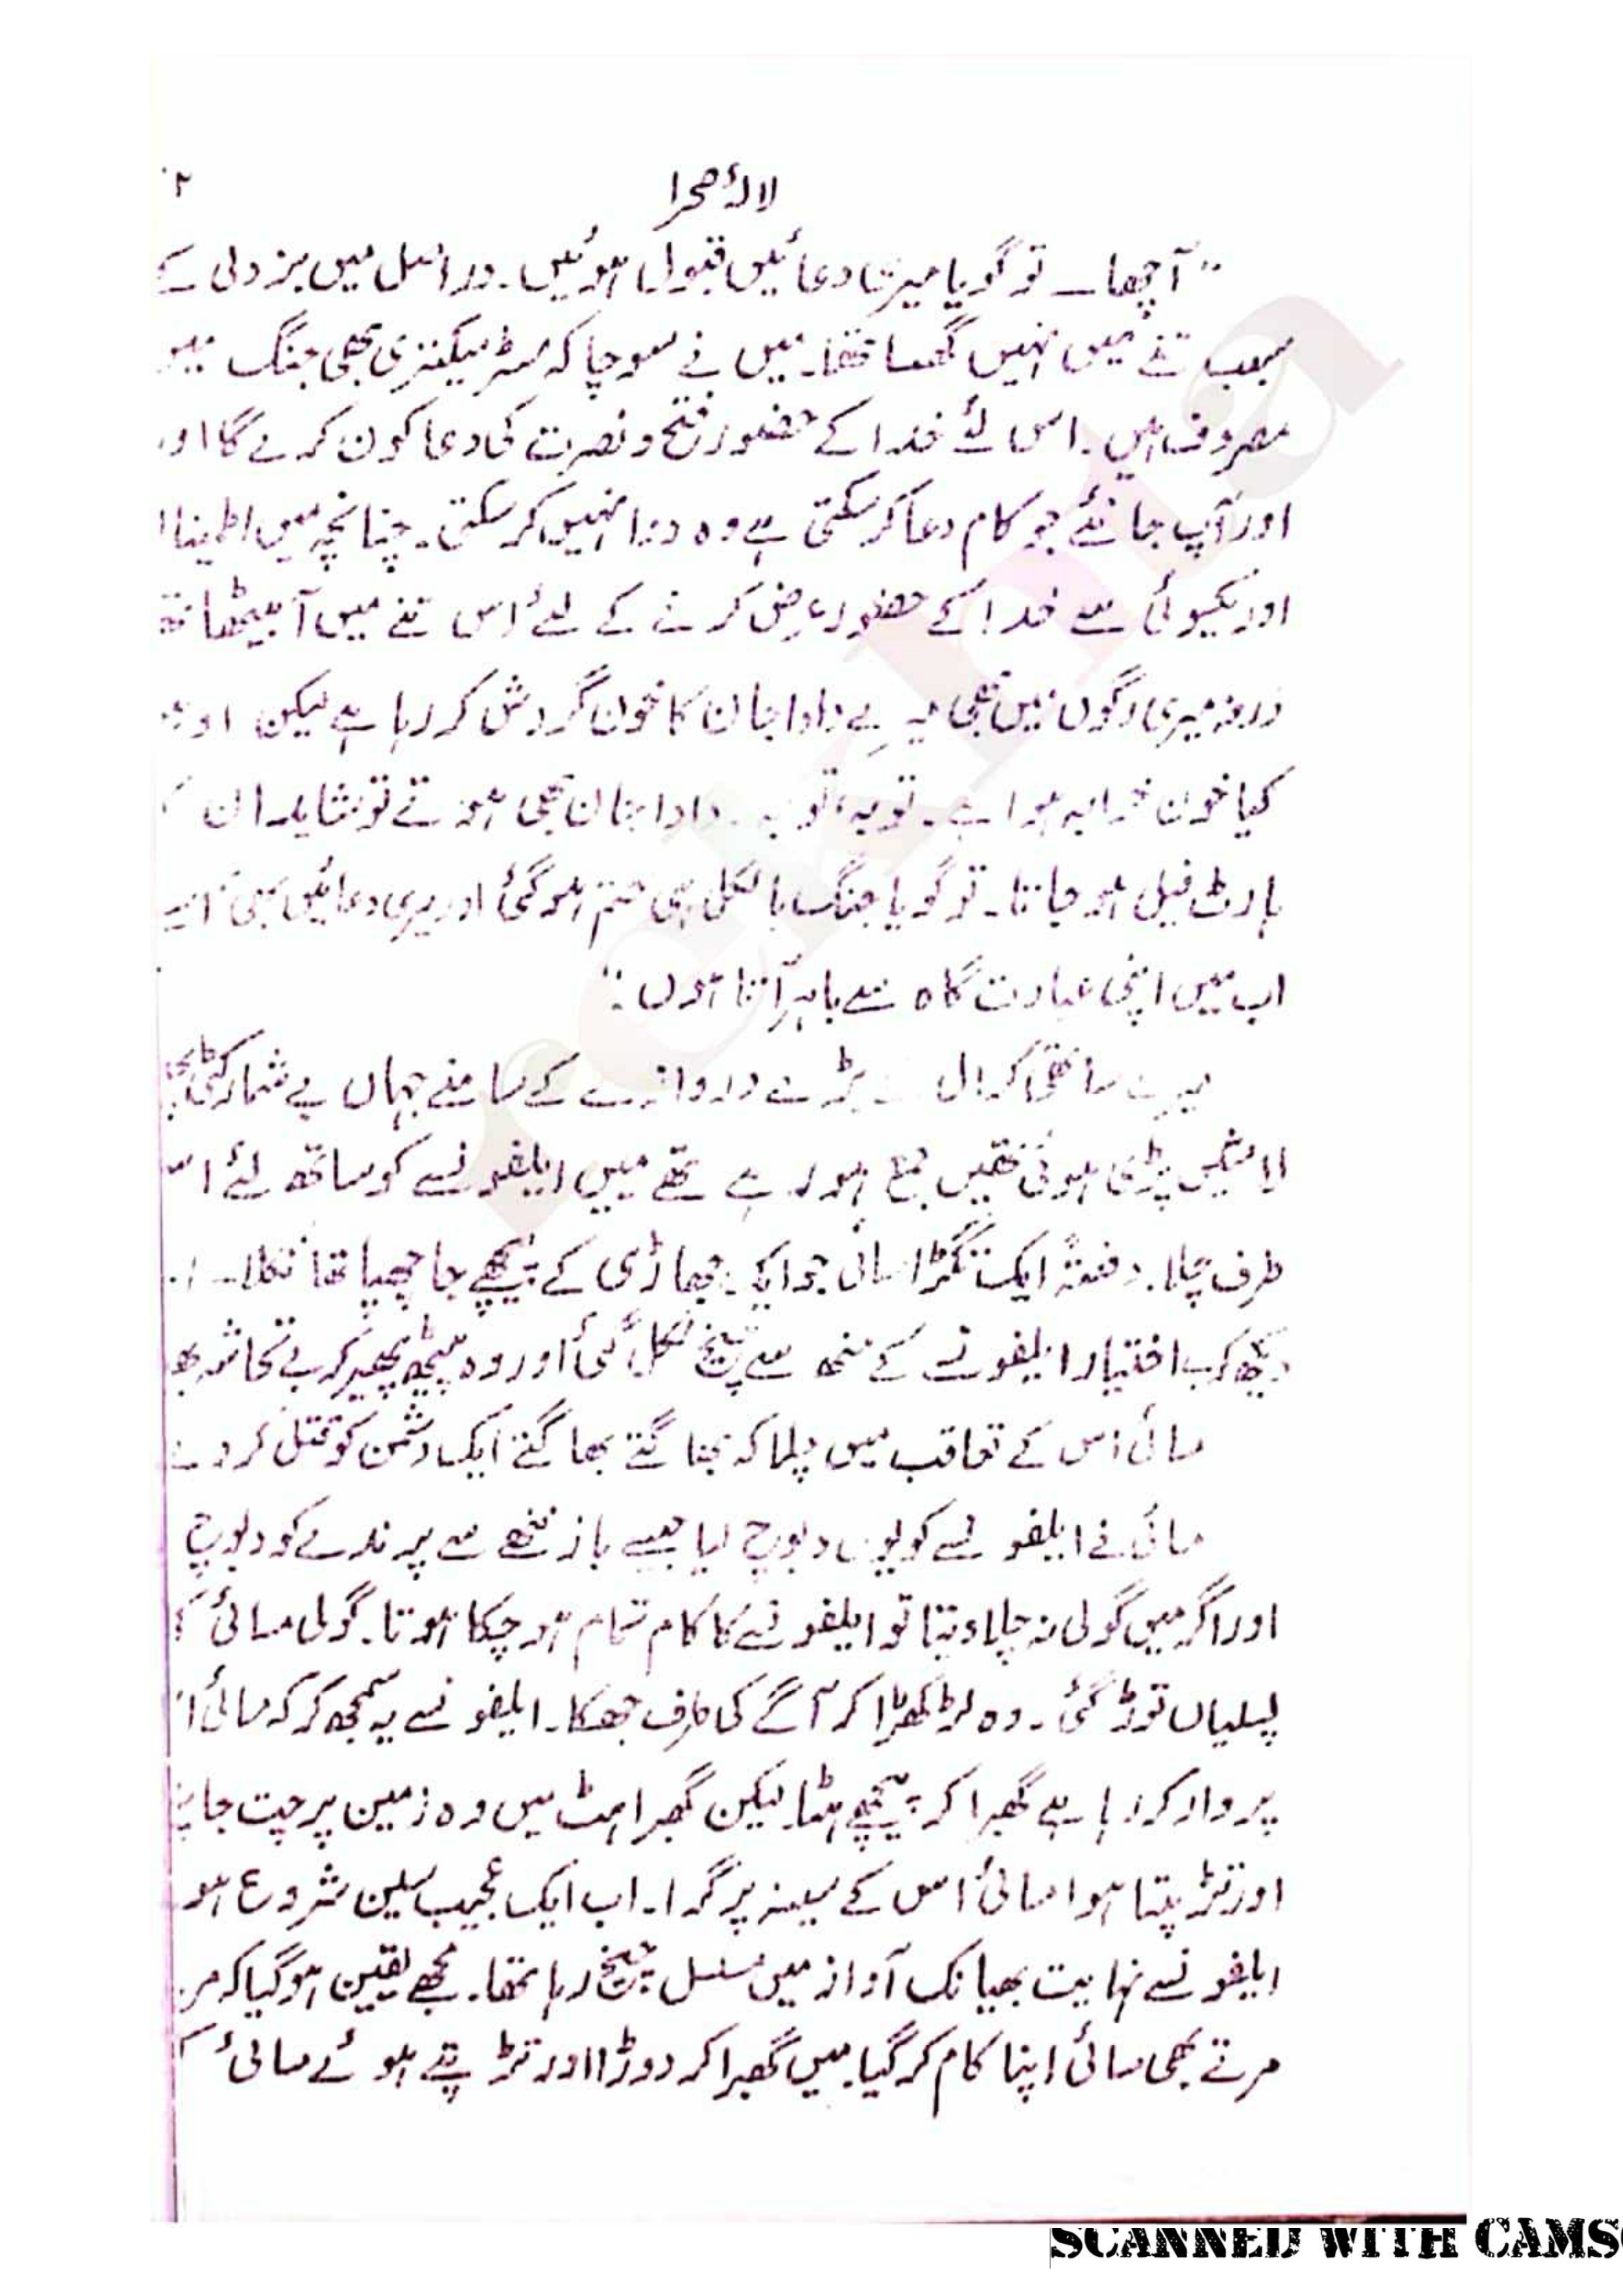 لالۂ صحرا ۲
"آچھا۔ تو گویا میری دعائیں قبول ہوئیں۔ دراصل میں بزدلی کے
سبب تنے میں نہیں گھسا تھا۔ میں نے سوچا کہ مسٹر میکنزی بھی جنگ میں
مصروف ہیں۔ اس لئے خدا کے حضور فتح و نصرت کی دعا کون کرے گا اور
اور آپ جانئے جو کام دعا کر سکتی ہے وہ دوا نہیں کر سکتی۔ چنانچہ میں اطمینا
اور یکسوئی سے خدا کے حضور عرض کرنے کے لئے اس تنے میں آ بیٹھا تھ
ورنہ میری رگوں میں بھی میرے دادا جان کا خون گردش کر رہا ہے لیکن
کیا خون خرابہ ہوا ہے۔ توبہ توبہ۔ دادا جان بھی ہوتے تو شاید ان
ہارٹ فیل ہو جاتا۔ تو گویا جنگ بالکل ہی ختم ہو گئی اور میری دعائیں
اب میں اپنی عبادت گاہ سے باہر آتا ہوں۔"
میرے ساتھی کرال کے بڑے دروازے کے سامنے جہاں بے شمار کٹی
لاشیں پڑی ہوئی تھیں جمع ہو رہے تھے میں ایلفونسے کو ساتھ لئے اس
طرف چلا۔ دفعتہً ایک تنگڑا سائی جو ایک جھاڑی کے پیچھے جا چھپا تھا نکلا۔
دیکھ کر بے اختیار ایلفونسے کے منھ سے چیخ نکل گئی اور وہ پیٹھ پھیر کر بے تحاشہ بھ
سائی اس کے تعاقب میں چلا کہ بھاگتے بھاگتے ایک دشمن کو قتل کر دے
سائی نے ایلفونسے کو یوں دبوچ لیا جیسے باز ننھے سے پرندے کو دبوچ
اور اگر میں گولی نہ چلا دیتا تو ایلفونسے کا کام تمام ہو چکا ہوتا۔ گولی مسائی ک
پسلیاں توڑ گئی۔ وہ لڑکھڑا کر آگے کی طرف جھکا۔ ایلفونسے یہ سمجھ کر کہ سائی ا
پر وار کر رہا ہے گھبرا کر پیچھے ہٹا لیکن گھبراہٹ میں وہ زمین پر چت جا
اور تڑپتا ہوا سائی اس کے سینہ پر گرا۔ اب ایک عجیب سین شروع ہو
ایلفونسے نہایت بھیانک آواز میں مسلسل چیخ رہا تھا۔ مجھے یقین ہو گیا کہ
مرتے بھی سائی اپنا کام کر گیا۔ میں گھبرا کر دوڑا اور تڑپتے ہوئے سائی
SCANNED WITH CAMS